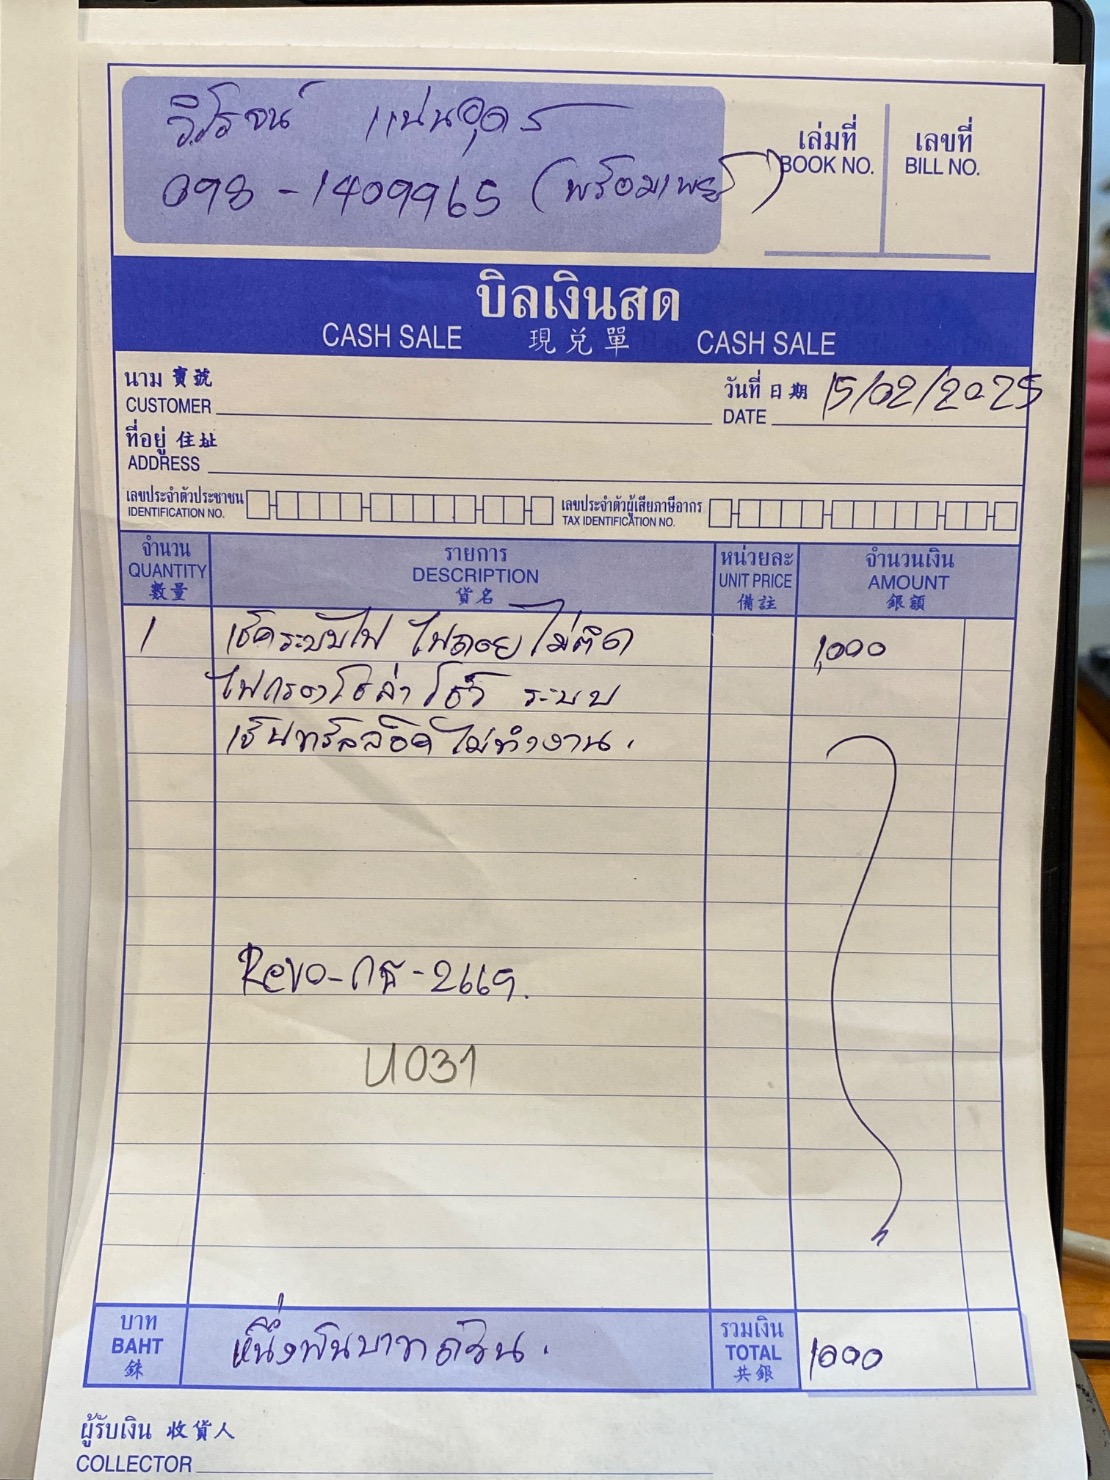 วิโรจน์ แน่นอุดร
098-1409965 (พร้อมเพย์)
เล่มที่
BOOK NO.
เลขที่
BILL NO.
บิลเงินสด
CASH SALE 現兌單 CASH SALE
นาม 寶號
CUSTOMER
วันที่ 日期 15/02/2025
DATE
ที่อยู่ 住址
ADDRESS
เลขประจำตัวประชาชน
IDENTIFICATION NO.
เลขประจำตัวผู้เสียภาษีอากร
TAX IDENTIFICATION NO.
จำนวน
QUANTITY
數量
รายการ
DESCRIPTION
貨名
หน่วยละ
UNIT PRICE
備註
จำนวนเงิน
AMOUNT
銀額
1 เช็คระบบไฟ ไฟลอย ไม่ติด 1,000
ไฟกรองโซล่า โชว์ ระบบ
เซ็นทรัลล็อค ไม่ทำงาน.
Revo-กธ-2669.
U031
บาท
BAHT
銖
หนึ่งพันบาทถ้วน.
รวมเงิน
TOTAL
共銀
1000
ผู้รับเงิน 收貨人
COLLECTOR